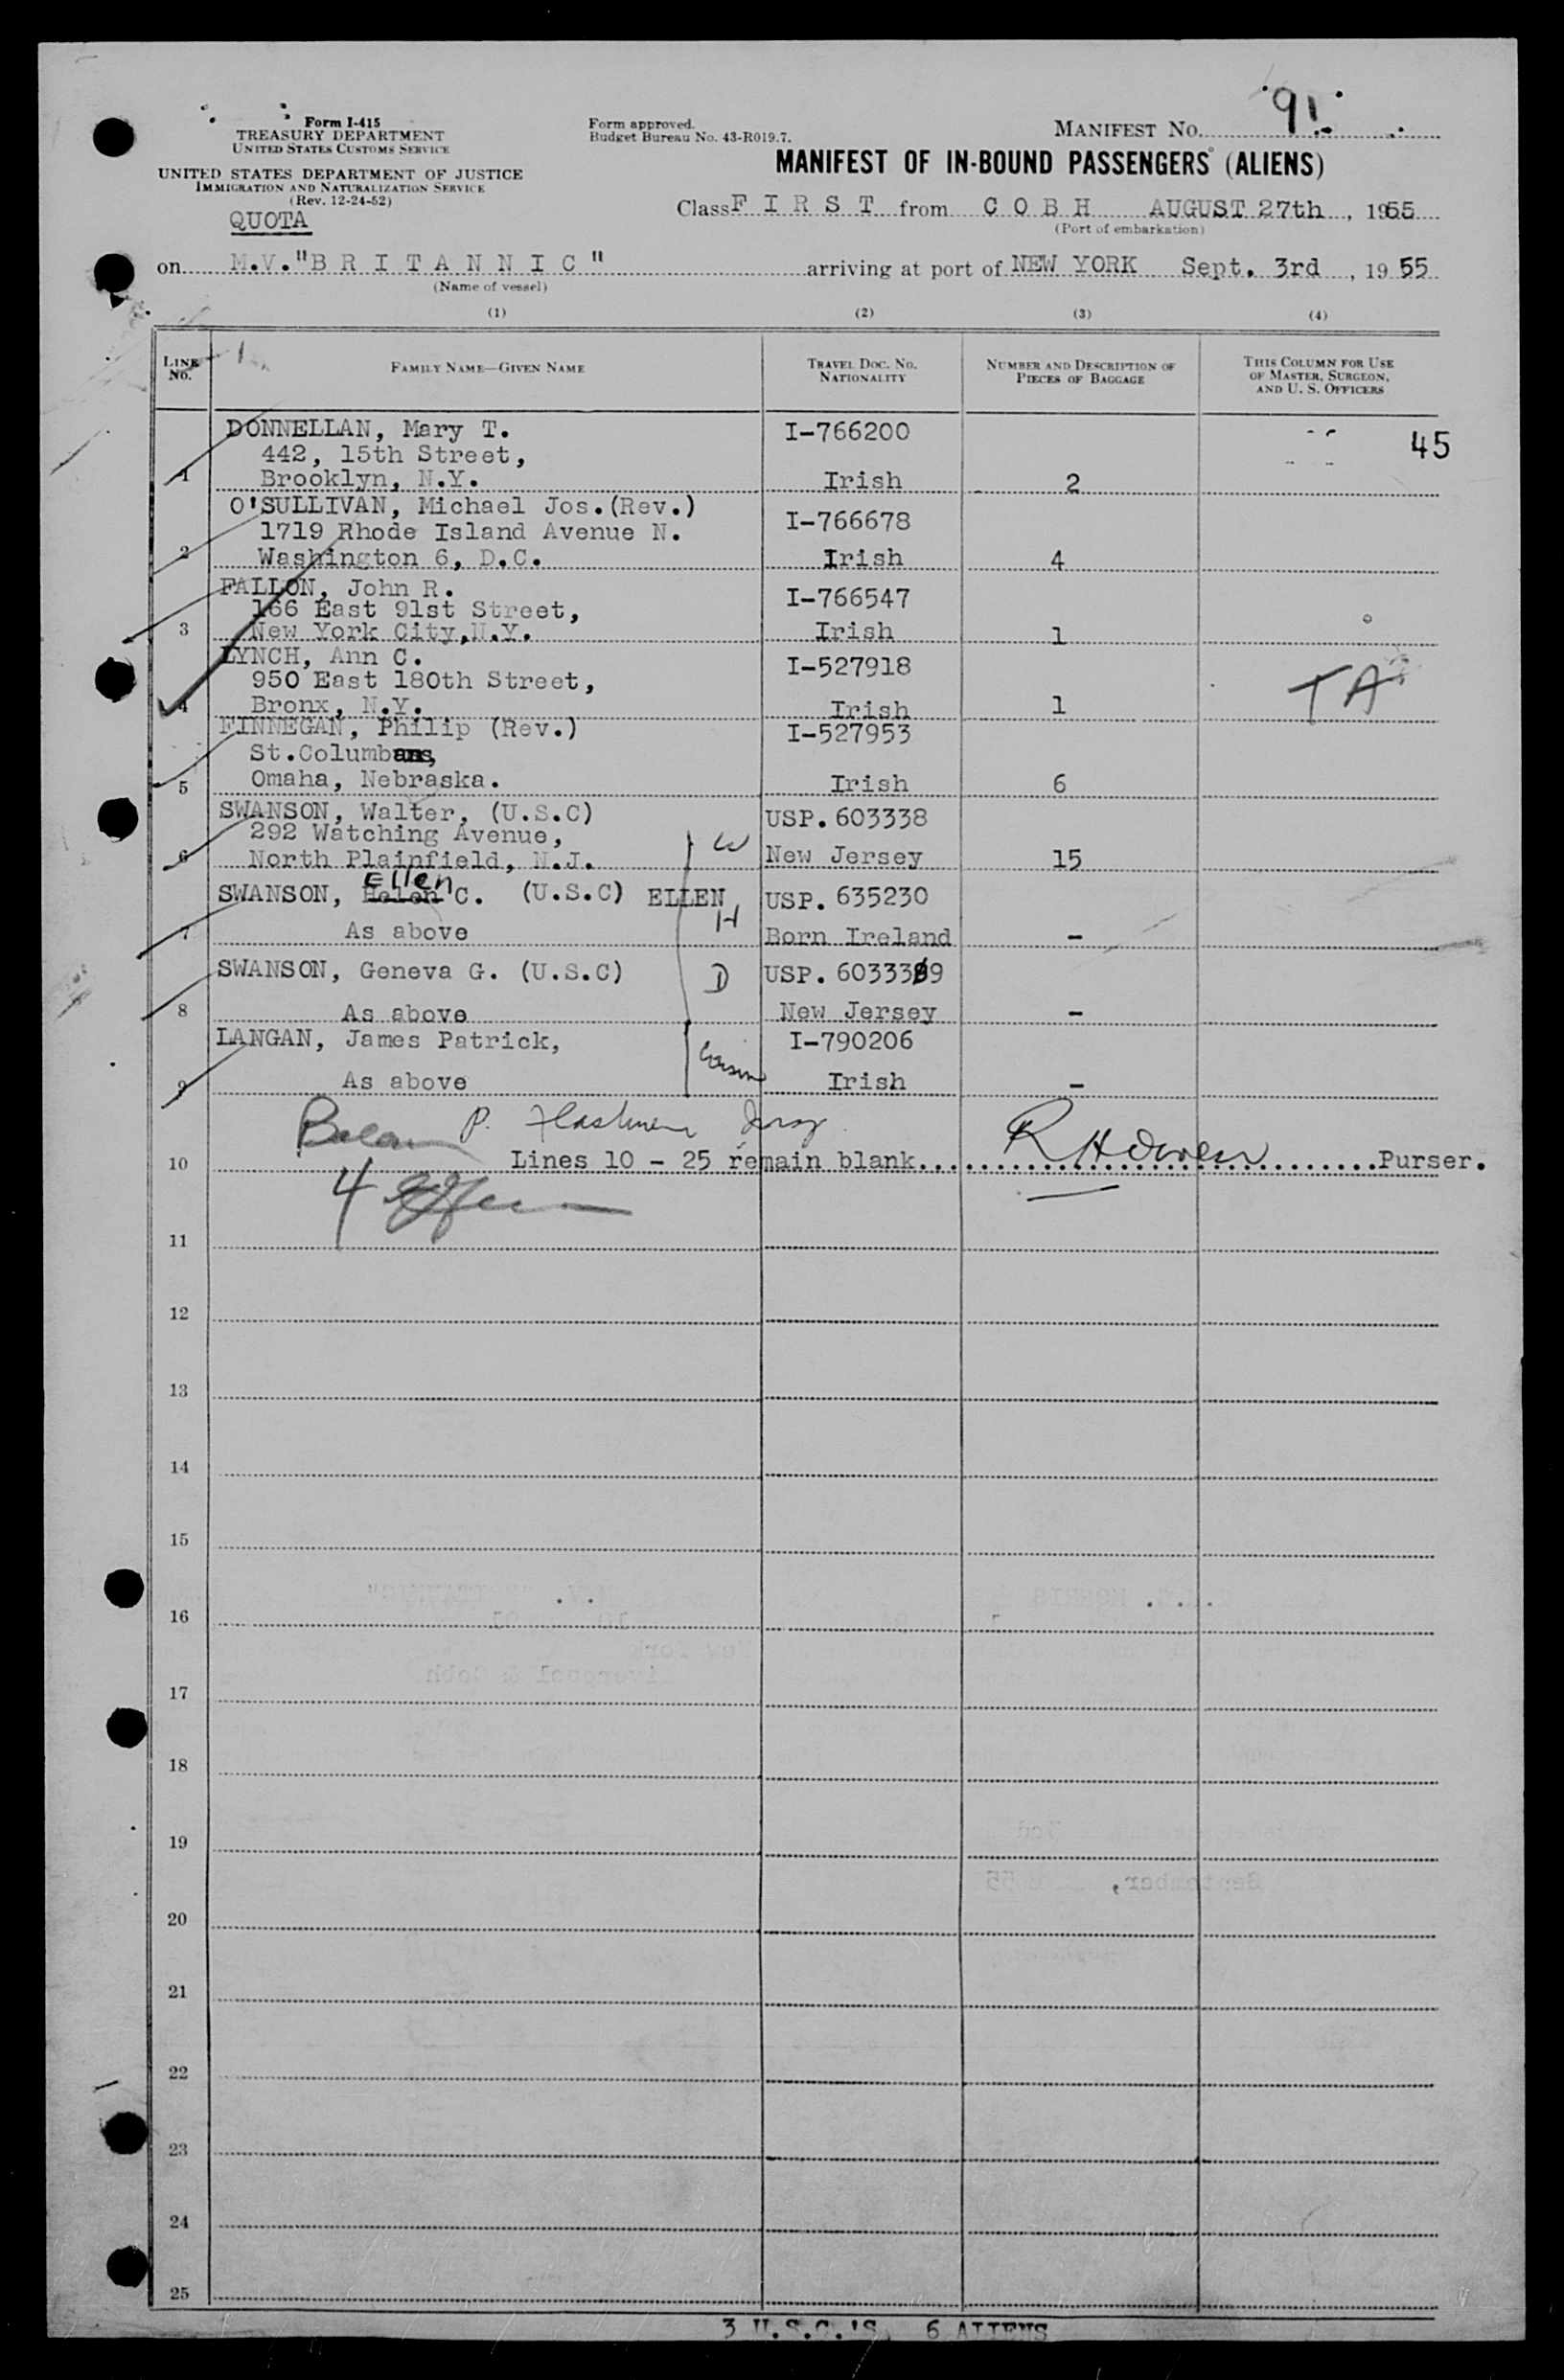 Form I-415
TREASURY DEPARTMENT
UNITED STATES CUSTOMS SERVICE
UNITED STATES DEPARTMENT OF JUSTICE
IMMIGRATION AND NATURALIZATION SERVICE
(Rev. 12-24-52)
QUOTA
Form approved.
Budget Bureau No. 43-R019.7.
MANIFEST NO. 91
MANIFEST OF IN-BOUND PASSENGERS (ALIENS)
Class F I R S T from C O B H AUGUST 27th, 1955
(Port of embarkation)
on M.V. "B R I T A N N I C" arriving at port of NEW YORK Sept. 3rd, 1955
(Name of vessel)
(1) (2) (3) (4)
LINE NO. FAMILY NAME—GIVEN NAME TRAVEL DOC. NO. NATIONALITY NUMBER AND DESCRIPTION OF PIECES OF BAGGAGE THIS COLUMN FOR USE OF MASTER, SURGEON, AND U. S. OFFICERS
DONNELLAN, Mary T. I-766200 45
442, 15th Street,
1 Brooklyn, N.Y. Irish 2
O'SULLIVAN, Michael Jos.(Rev.)
1719 Rhode Island Avenue N. I-766678
2 Washington 6, D.C. Irish 4
FALLON, John R. I-766547
166 East 91st Street,
3 New York City, N.Y. Irish 1
LYNCH, Ann C. I-527918
950 East 180th Street, TA
4 Bronx, N.Y. Irish 1
FINNEGAN, Philip (Rev.) I-527953
St.Columbans,
5 Omaha, Nebraska. Irish 6
SWANSON, Walter, (U.S.C) USP. 603338
292 Watching Avenue, W
6 North Plainfield, N.J. New Jersey 15
Ellen
SWANSON, Helen C. (U.S.C) ELLEN USP. 635230
H
7 As above Born Ireland -
SWANSON, Geneva G. (U.S.C) D USP. 603339
8 As above New Jersey -
LANGAN, James Patrick, I-790206
Cousin
9 As above Irish -
P.
10 Lines 10 - 25 remain blank.... R H Owen ....Purser.
4
11
12
13
14
15
16
17
18
19
20
21
22
23
24
25
3 U.S.C.'S, 6 ALIENS